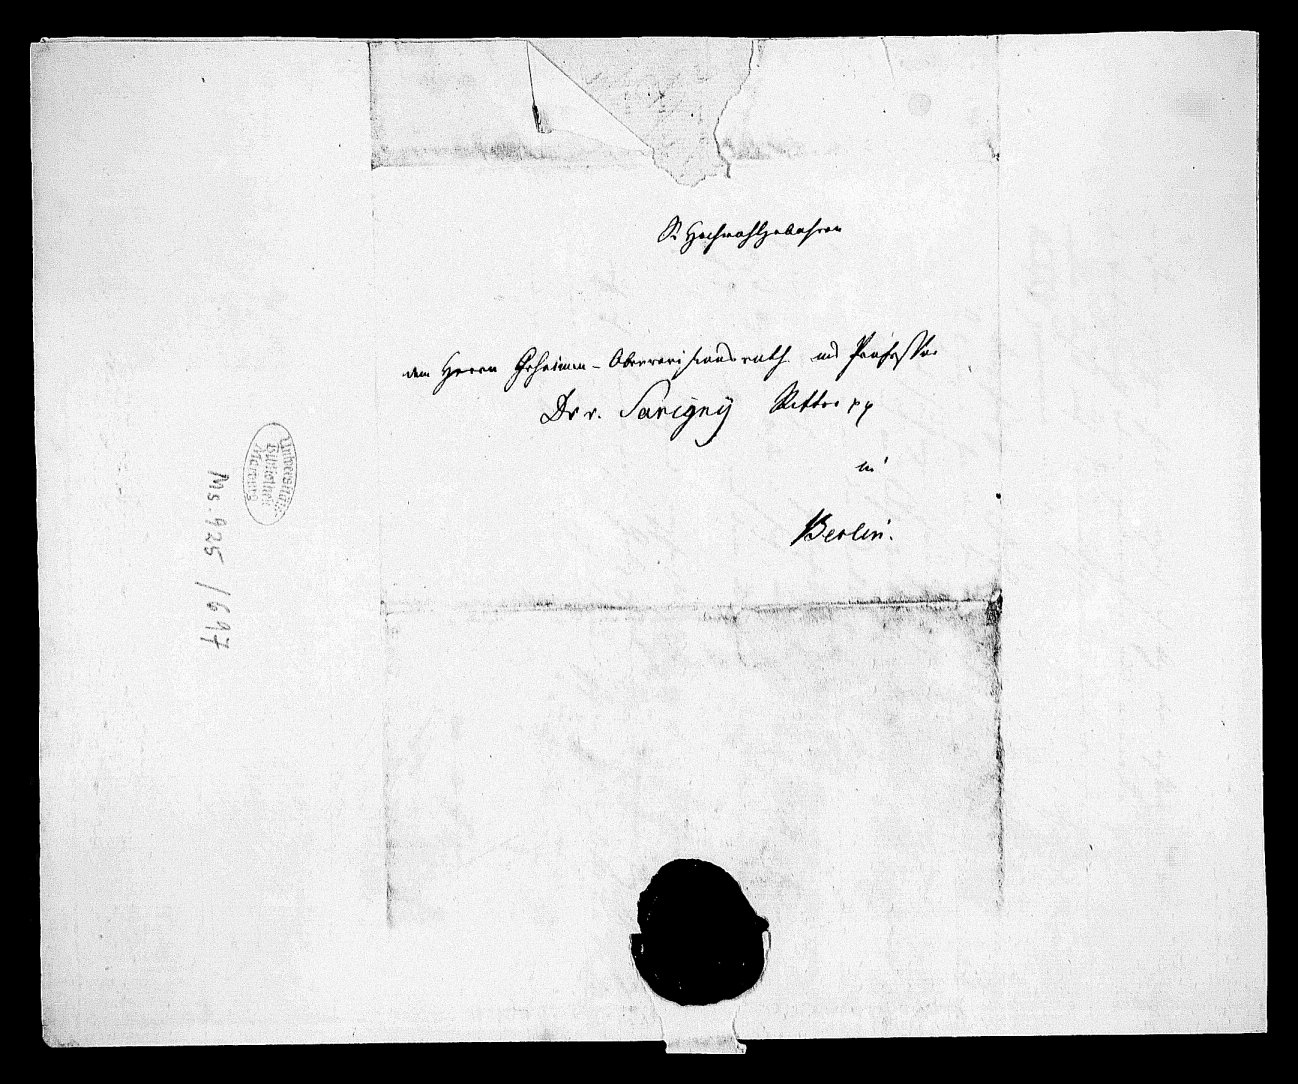 Sr Hochwohlgebohren
dem Herrn Geheimen-Oberrevisionsrath und Professor
Dr v. Savigny Ritter pp
in
Berlin.
Universitäts-
Bibliothek
Marburg
Ms. 925 / 697